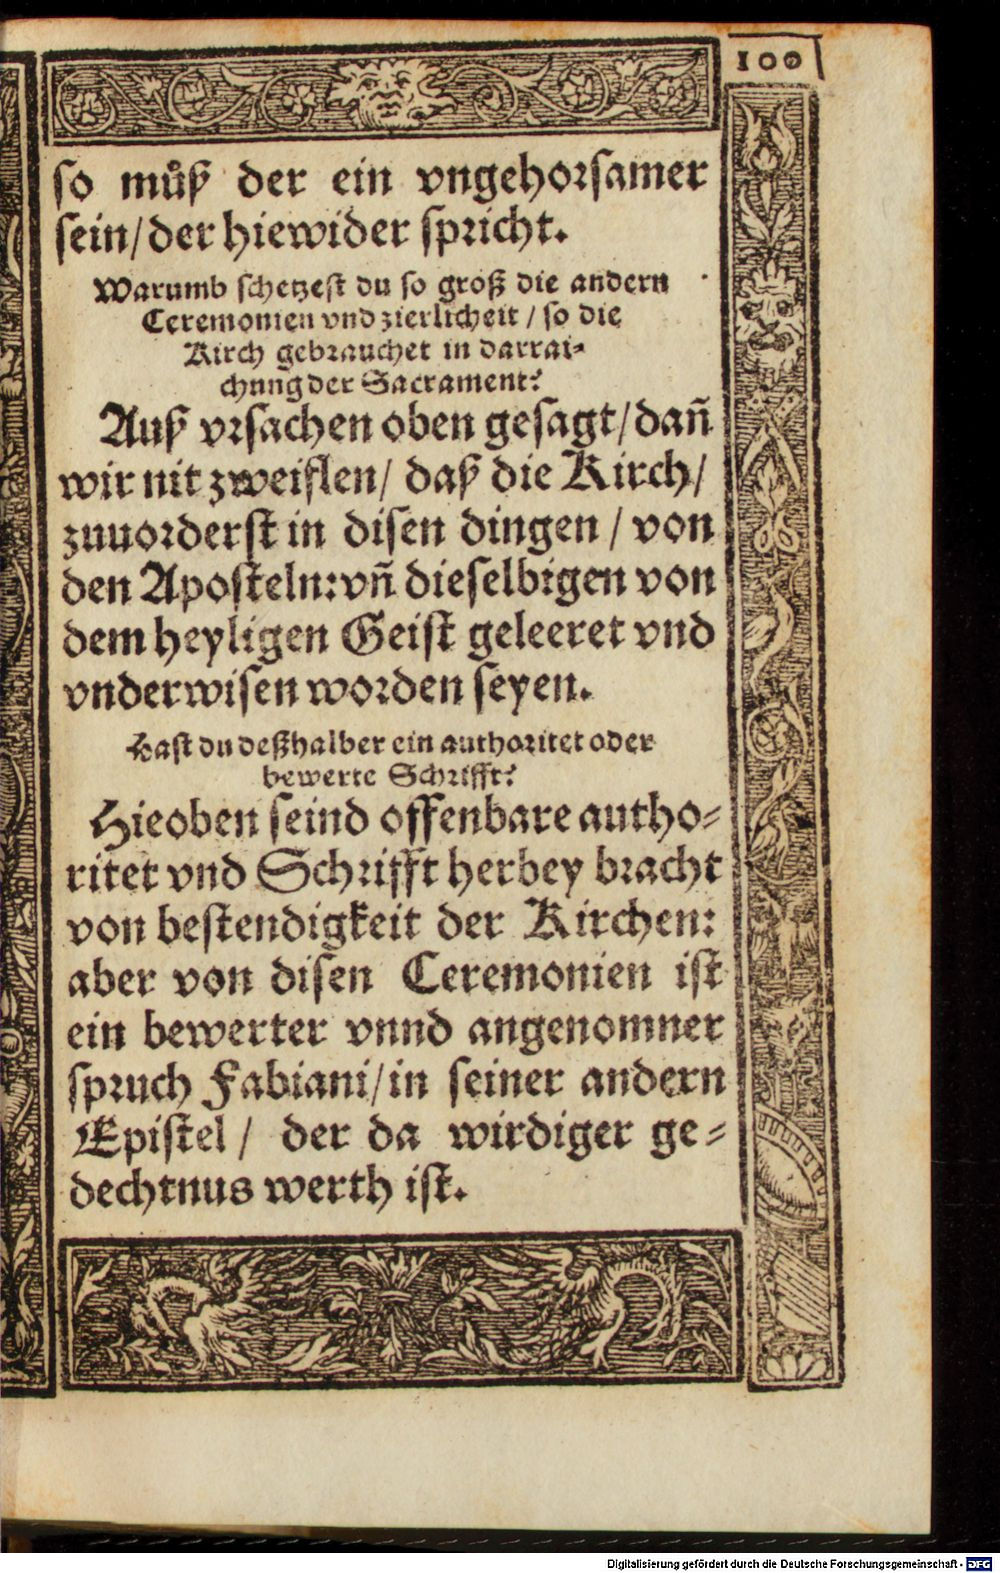 100
so můß der ein vngehorsamer
sein/ der hiewider spricht.
Warumb schetzest du so groß die andern
Ceremonien vnd zierlicheit / so die
Kirch gebrauchet in darrai-
chung der Sacrament?
Auß vrsachen oben gesagt/ dañ
wir nit zweiflen/ daß die Kirch/
zuuorderst in disen dingen / von
den Aposteln: vñ dieselbigen von
dem heyligen Geist geleeret vnd
vnderwisen worden seyen.
Hast du deßhalber ein authoritet oder
bewerte Schrifft?
Hieoben seind offenbare autho-
ritet vnd Schrifft herbey bracht
von bestendigkeit der Kirchen:
aber von disen Ceremonien ist
ein bewerter vnnd angenomner
spruch Fabiani/ in seiner andern
Epistel / der da wirdiger ge-
dechtnus werth ist.
Digitalisierung gefördert durch die Deutsche Forschungsgemeinschaft - DFG